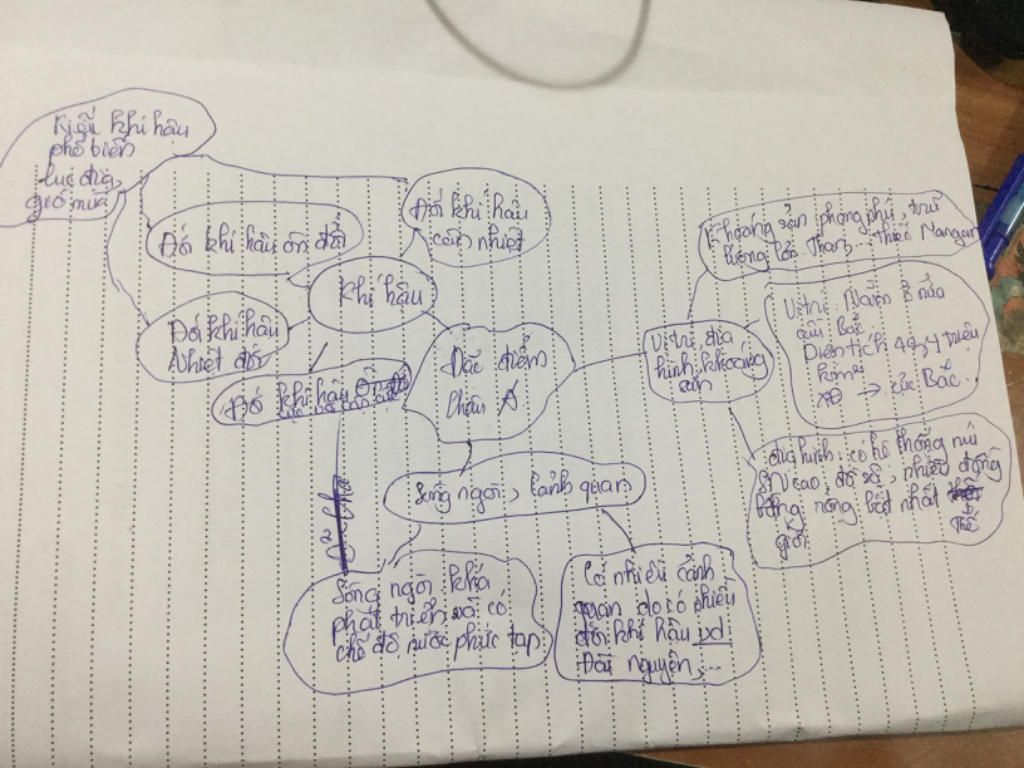 Kiểu khí hậu
phổ biến
lục địa,
gió mùa
Đới khí hậu
cận nhiệt
Đới khí hậu ôn đới
Khí hậu
Đới khí hậu
Nhiệt đới
Đới khí hậu
Đặc điểm
châu Á
Vị trí địa
hình, khoáng
sản
Khoáng sản phong phú, trữ
lượng lớn Than,... thiếc Mangan
Vị trí: Nằm ở nửa
cầu Bắc
Diện tích 44,4 triệu
km²
XĐ → cực Bắc.
địa hình: có hệ thống núi
SN cao, đồ sộ, nhiều đồng
bằng rộng bật nhất
thế
giới
Sông ngòi, cảnh quan
Sông ngòi khá
phát triển và có
chế độ nước phức tạp
Có nhiều cảnh
quan do có nhiều
đới khí hậu vd
Đài nguyên,...